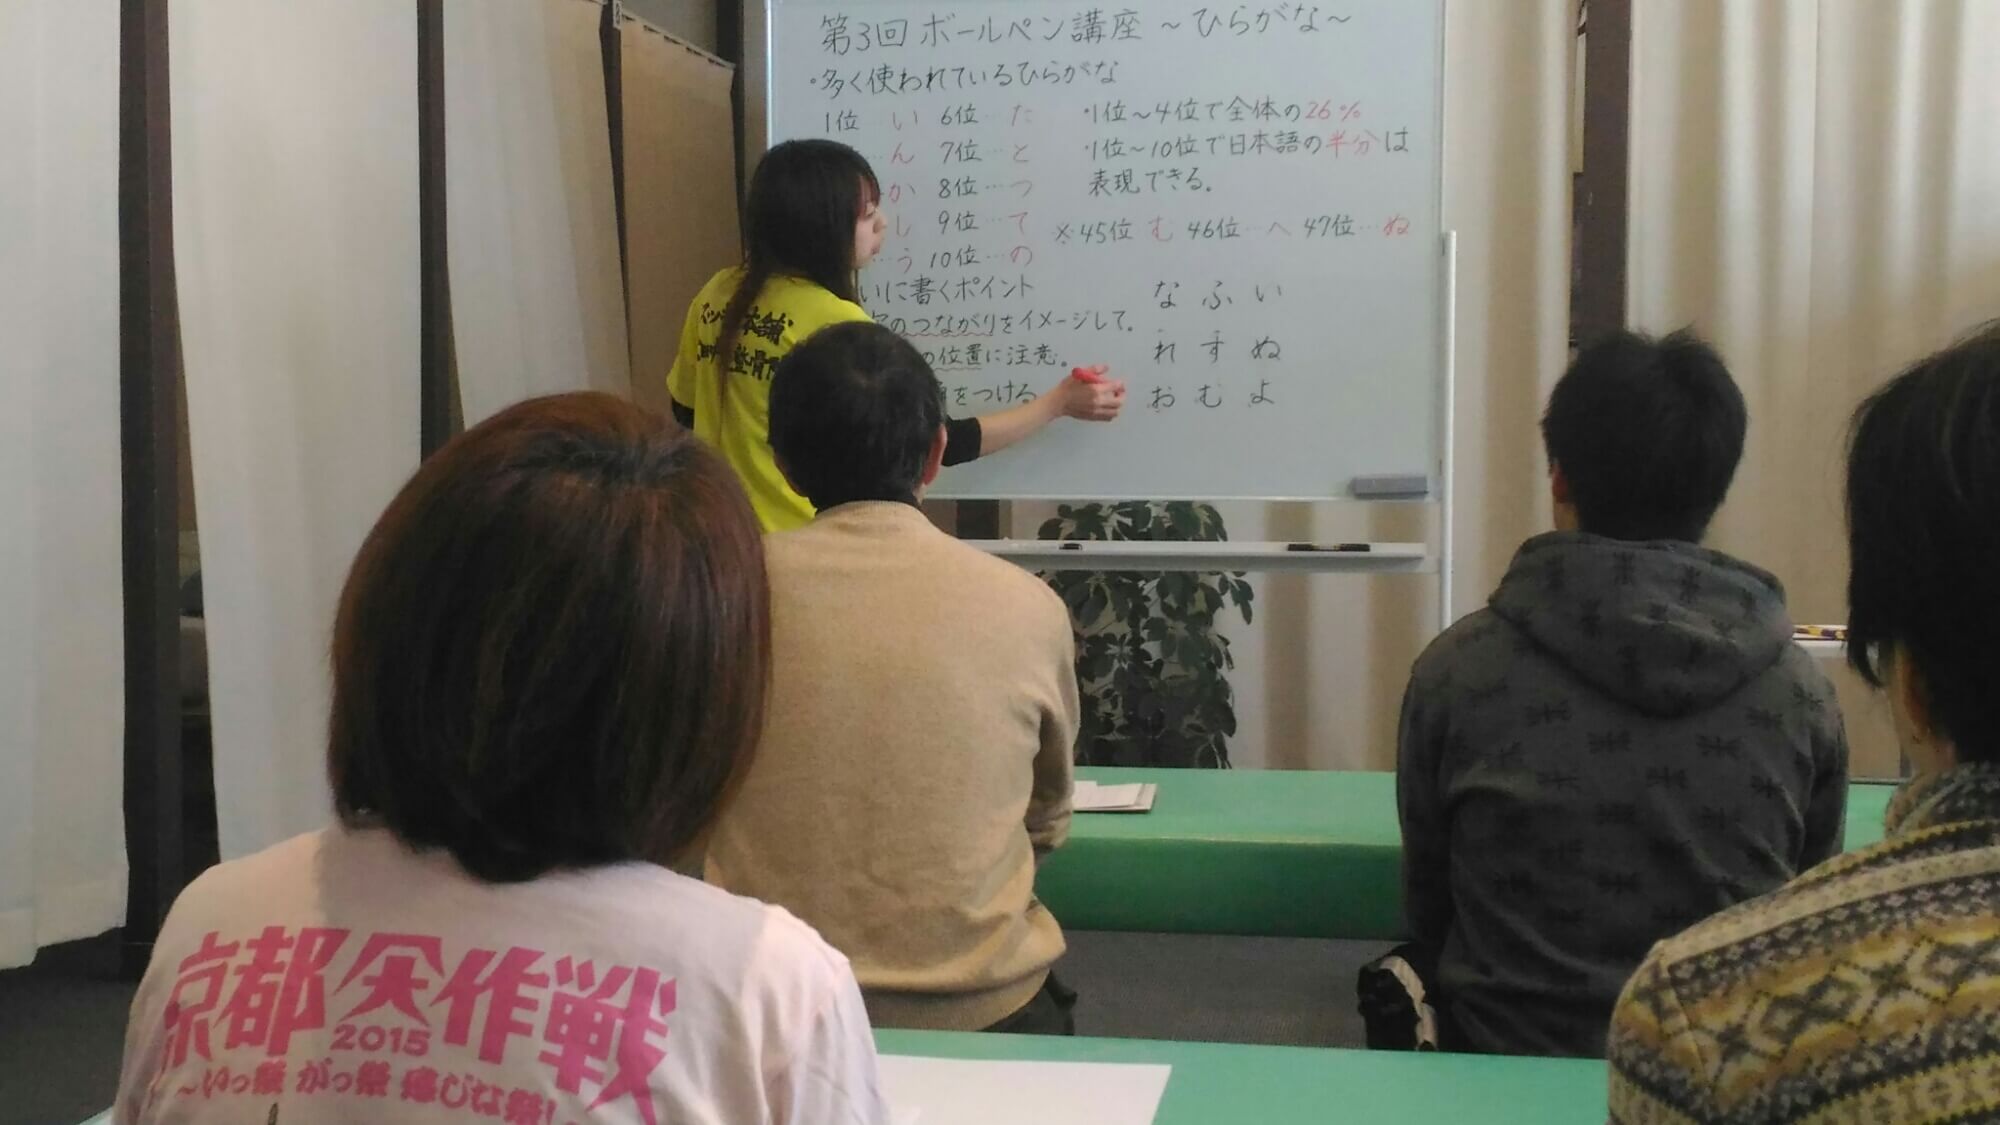 第3回 ボールペン講座 ～ひらがな～
・多く使われているひらがな
1位…い 6位…た
ん 7位…と
か 8位…つ
し 9位…て
う 10位…の
・1位～4位で全体の26%
・1位～10位で日本語の半分は
表現できる。
※45位 む 46位…へ 47位…ぬ
いに書くポイント
のつながりをイメージして。
の位置に注意。
をつける
な ふ い
れ す ぬ
お む よ
本舗
整骨院
京都 作戦
2015
～いっ祭 がっ祭 感じな祭!